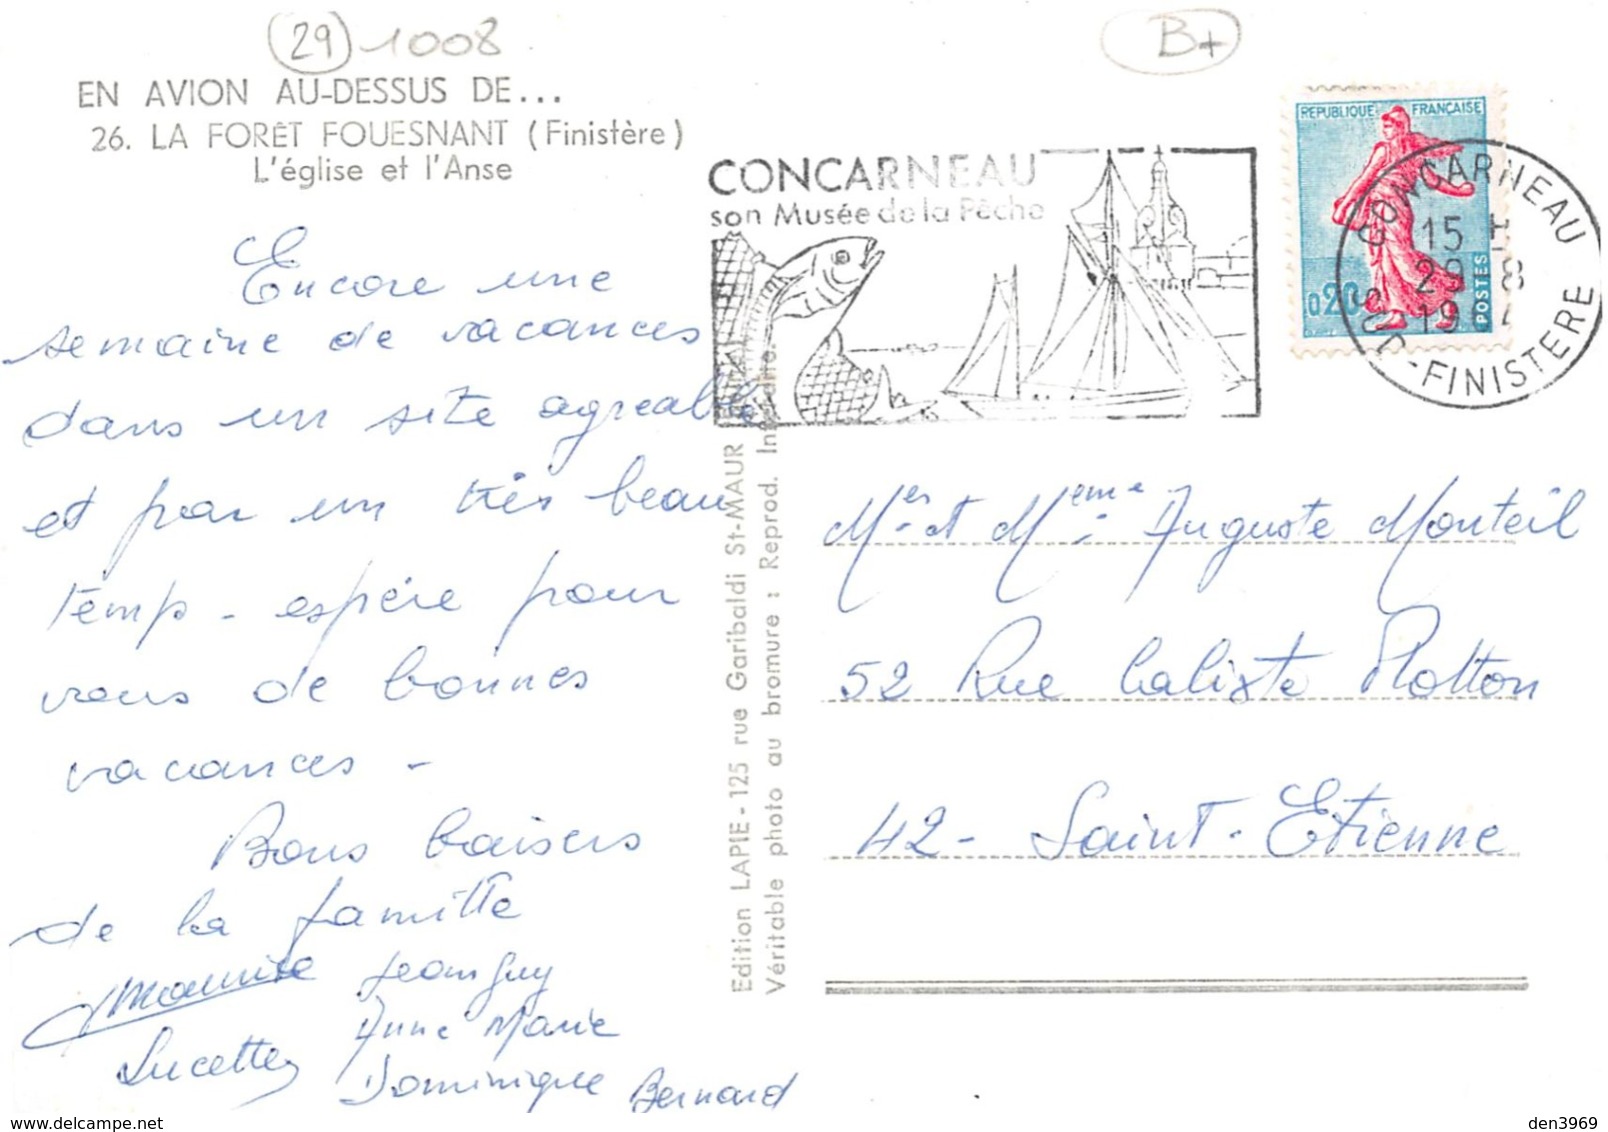 29 1008
B+
EN AVION AU-DESSUS DE...
26. LA FORÊT FOUESNANT (Finistère)
L'église et l'Anse
CONCARNEAU
son Musée de la Pêche
REPUBLIQUE FRANÇAISE
0,20
POSTES
CONCARNEAU
15 H
29-8
19
SUD-FINISTERE
Encore une
semaine de vacances
dans un site agreable
et par un très beau
temp - espère pour
vous de bonnes
vacances -
Bons baisers
de la famille
Maurice Jean Guy
Anne Marie
Lucette Dominique Bernard
Edition LAPIE - 125 rue Garibaldi St-MAUR
Véritable photo au bromure : Reprod. Interdite.
Mer et Meme Auguste Monteil
52 Rue Calixte Plotton
42 - Saint-Etienne
den3969